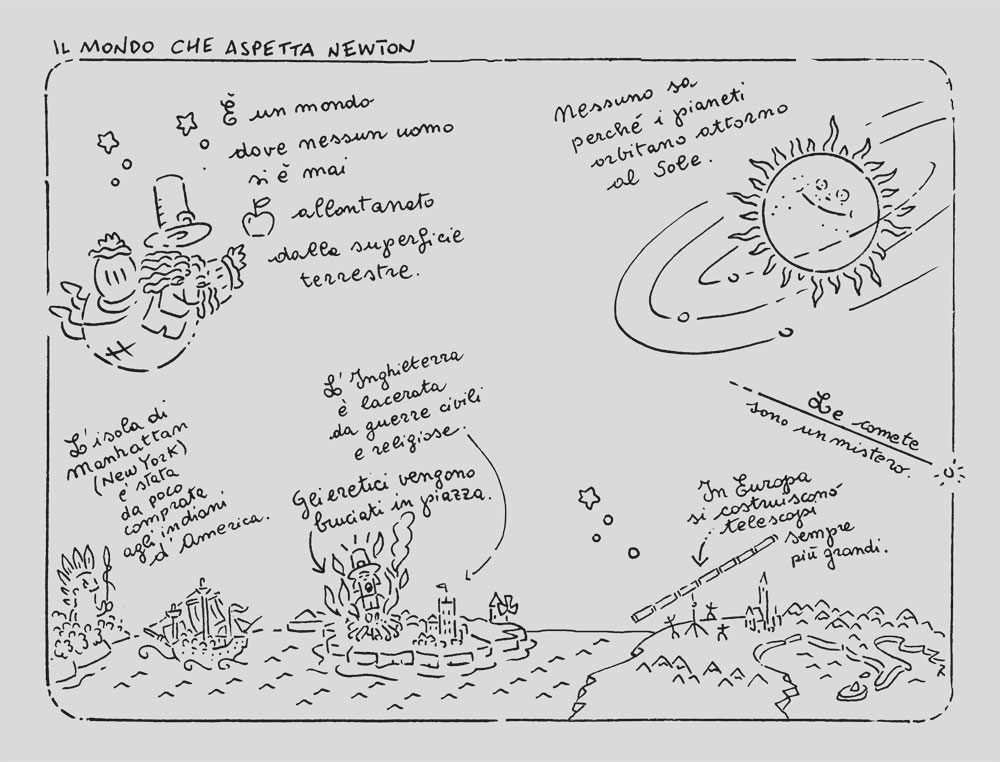 IL MONDO CHE ASPETTA NEWTON
È un mondo
dove nessun uomo
si è mai
allontanato
dalla superficie
terrestre.
Nessuno sa
perché i pianeti
orbitano attorno
al Sole.
Le comete
sono un mistero.
L'isola di
Manhattan
(New York)
è stata
da poco
comprata
agli indiani
d'America.
L'Inghilterra
è lacerata
da guerre civili
e religiose.
Gli eretici vengono
bruciati in piazza.
In Europa
si costruiscono
telescopi
sempre
più grandi.